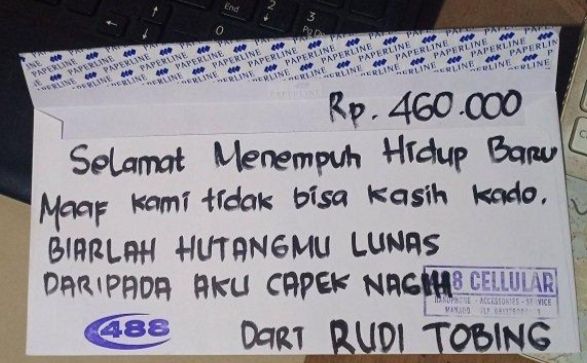 End
2
3
Pg Dn
0
PAPERLINE PAPERLINE PAPERLINE PAPERLINE PAPERLINE PAPERLINE
Rp. 460.000
Selamat Menempuh Hidup Baru
Maaf kami tidak bisa kasih kado.
BIARLAH HUTANGMU LUNAS
DARIPADA AKU CAPEK NAGIH
8 CELLULAR
HANDPHONE - ACCESSORIES - SERVICE
MANADO
488
DARI RUDI TOBING